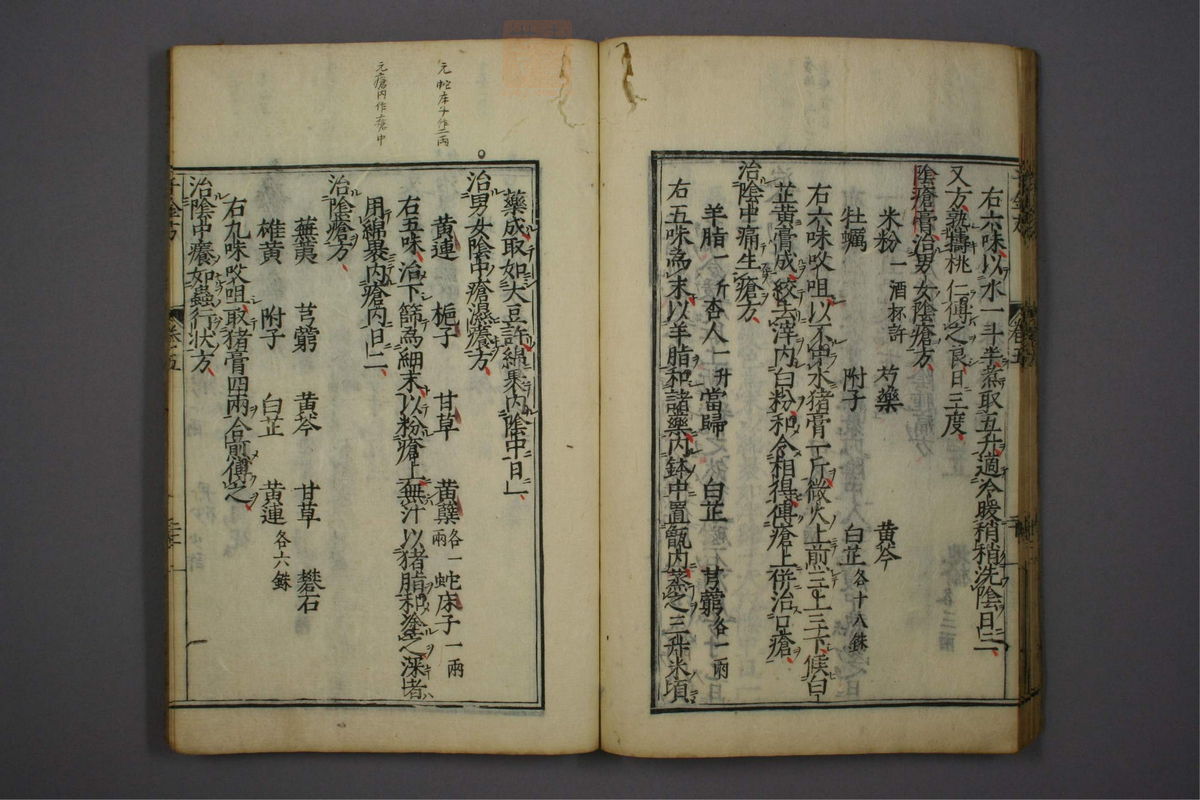 右六味以水一斗半煮取五升適冷暖稍稍洗陰日三
又方熟擣桃仁傅之良日三度
陰瘡膏治男女陰瘡方
米粉一酒杯許 芍藥 黃芩
牡蠣 附子 白芷各十八銖
右六味㕮咀以不中水猪膏一斤微火上煎三上三下候白
芷黃膏成絞去滓內白粉和令相得傅瘡上併治口瘡
治陰中痛生瘡方
羊脂一斤 杏人一升 當歸 白芷 芎藭各一兩
右五味為末以羊脂和諸藥內鉢中置甑內蒸之三升米頃
藥成取如大豆許綿裹內陰中日一
治男女陰中瘡濕癢方
黃連 梔子 甘草 黃蘗各一兩 蛇床子一兩
右五味治下篩為細末以粉瘡上無汁以猪脂和塗之深者
用綿裹內瘡內日二
治陰瘡方
蕪荑 芎藭 黃芩 甘草 礬石
雄黃 附子 白芷 黃連各六銖
右九味㕮咀取猪膏四兩合煎傅之
治陰中癢如蟲行狀方
元蛇床子作二兩
元瘡內作瘡中
千金方
卷五